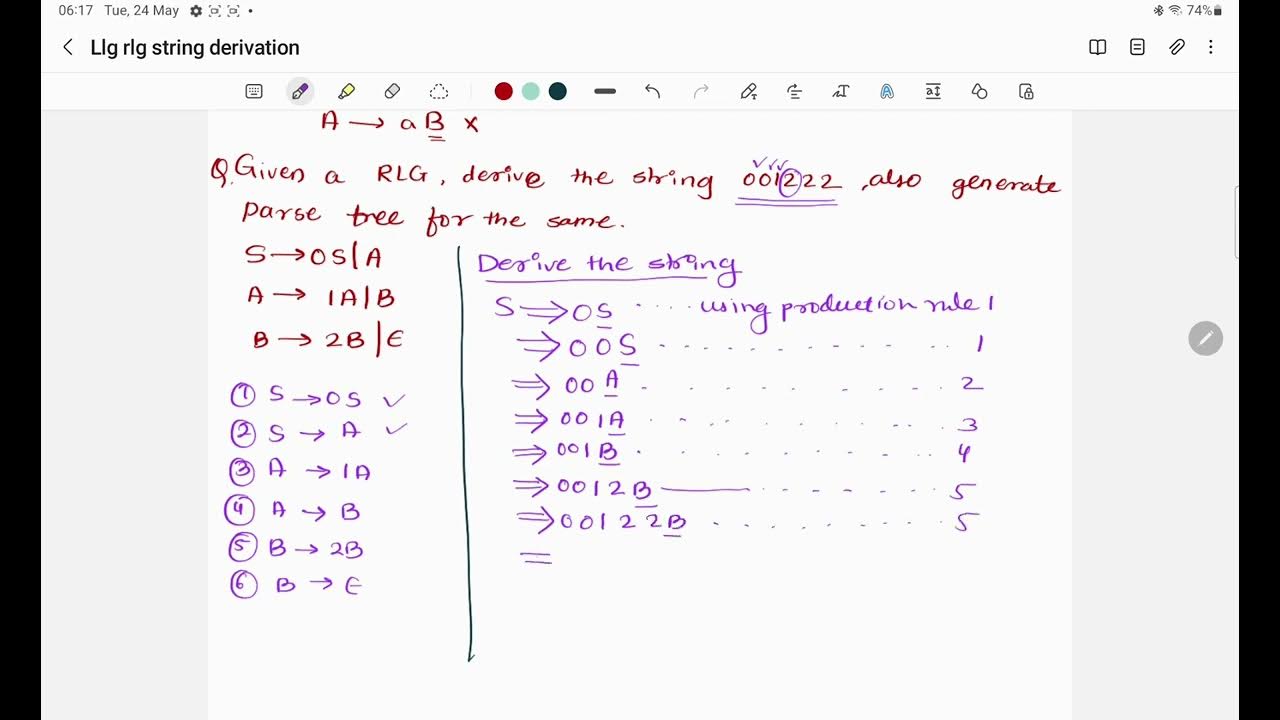 06:17 Tue, 24 May
74%
Llg rlg string derivation
A → a B ×
Q. Given a RLG, derive the string 001222, also generate
Parse tree for the same.
S → 0S | A
A → 1A | B
B → 2B | ε
① S → 0S ✓
② S → A ✓
③ A → 1A
④ A → B
⑤ B → 2B
⑥ B → ε
Derive the string
S ⇒ 0S .... using production rule 1
⇒ 00S ........ 1
⇒ 00A ........ 2
⇒ 001A ........ 3
⇒ 001B ........ 4
⇒ 0012B ........ 5
⇒ 00122B ........ 5
=